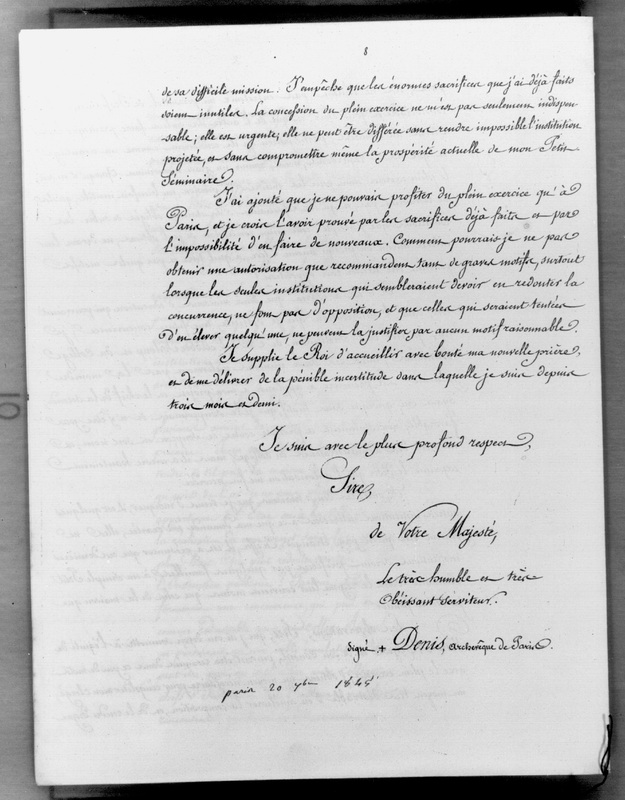 8
de sa difficile mission. J'empêche que les énormes sacrifices que j'ai déjà faits
soient inutiles. La concession du plein exercice ne m'est pas seulement indispen-
sable; elle est urgente; elle ne peut être différée sans rendre impossible l'institution
projetée, et sans compromettre même la prospérité actuelle de mon Petit
Séminaire.
J'ai ajouté que je ne pouvais profiter du plein exercice qu'à
Paris, et je crois l'avoir prouvé par les sacrifices déjà faits et par
l'impossibilité d'en faire de nouveaux. Comment pourrais-je ne pas
obtenir une autorisation que recommandent tant de graves motifs, surtout
lorsque les seules institutions qui sembleraient devoir en redouter la
concurrence, ne font pas d'opposition, et que celles qui seraient tentées
d'en élever quelqu'une, ne peuvent la justifier par aucun motif raisonnable.
Je supplie le Roi d'accueillir avec bonté ma nouvelle prière,
et de me délivrer de la pénible incertitude dans laquelle je suis depuis
trois mois et demi.
Je suis avec le plus profond respect,
Sire,
de Votre Majesté,
Le très humble et très
obéissant serviteur.
signé + Denis, archevêque de Paris.
paris 20 9bre 1845
10